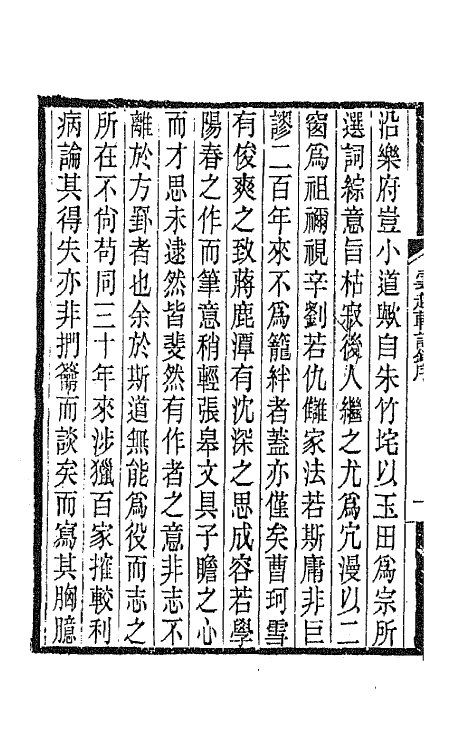 沿樂府豈小道歟自朱竹垞以玉田爲宗所
選詞綜意旨枯寂後人繼之尤爲冗漫以二
窗爲祖禰視辛劉若仇讎家法若斯庸非巨
謬二百年來不爲籠絆者蓋亦僅矣曹珂雪
有俊爽之致蔣鹿潭有沈深之思成容若學
陽春之作而筆意稍輕張皋文具子瞻之心
而才思未逮然皆斐然有作者之意非志不
離於方罫者也余於斯道無能爲役而志之
所在不尙苟同三十年來涉獵百家搉較利
病論其得失亦非捫籥而談矣而寫其胸臆
雲起軒詞鈔序
一